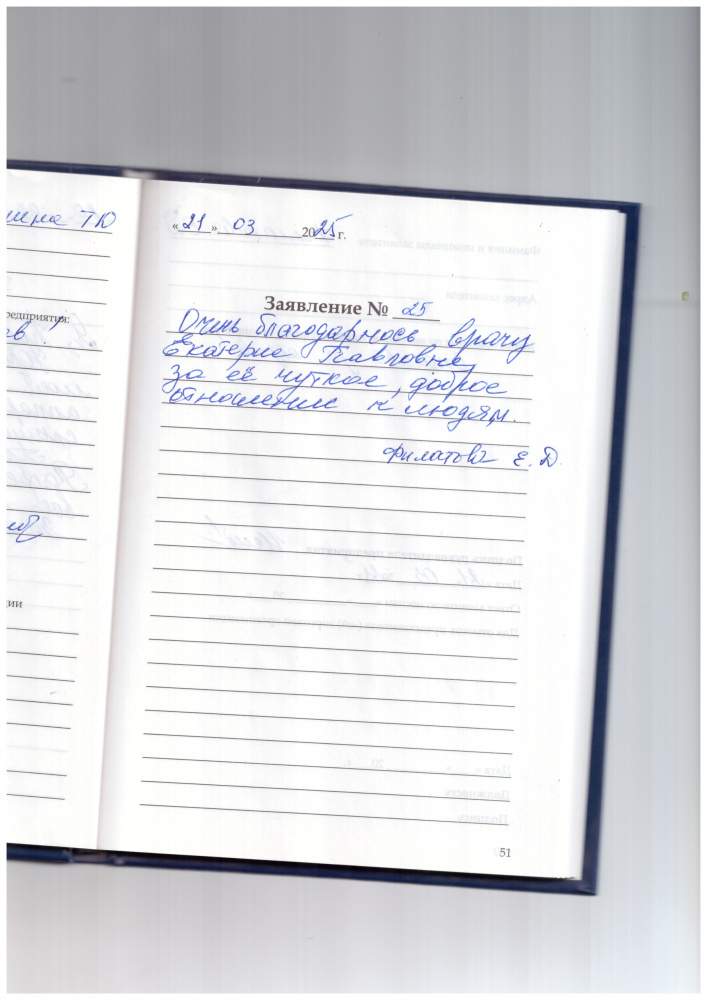 ина ТЮ
редприятия:
ции
«21» 03 2025 г.
Заявление № 25
Очень благодарнось врачу
Екатерие Павловне
за её чуткое, доброе
отношение к людям.
Филатова Е.Д.
51